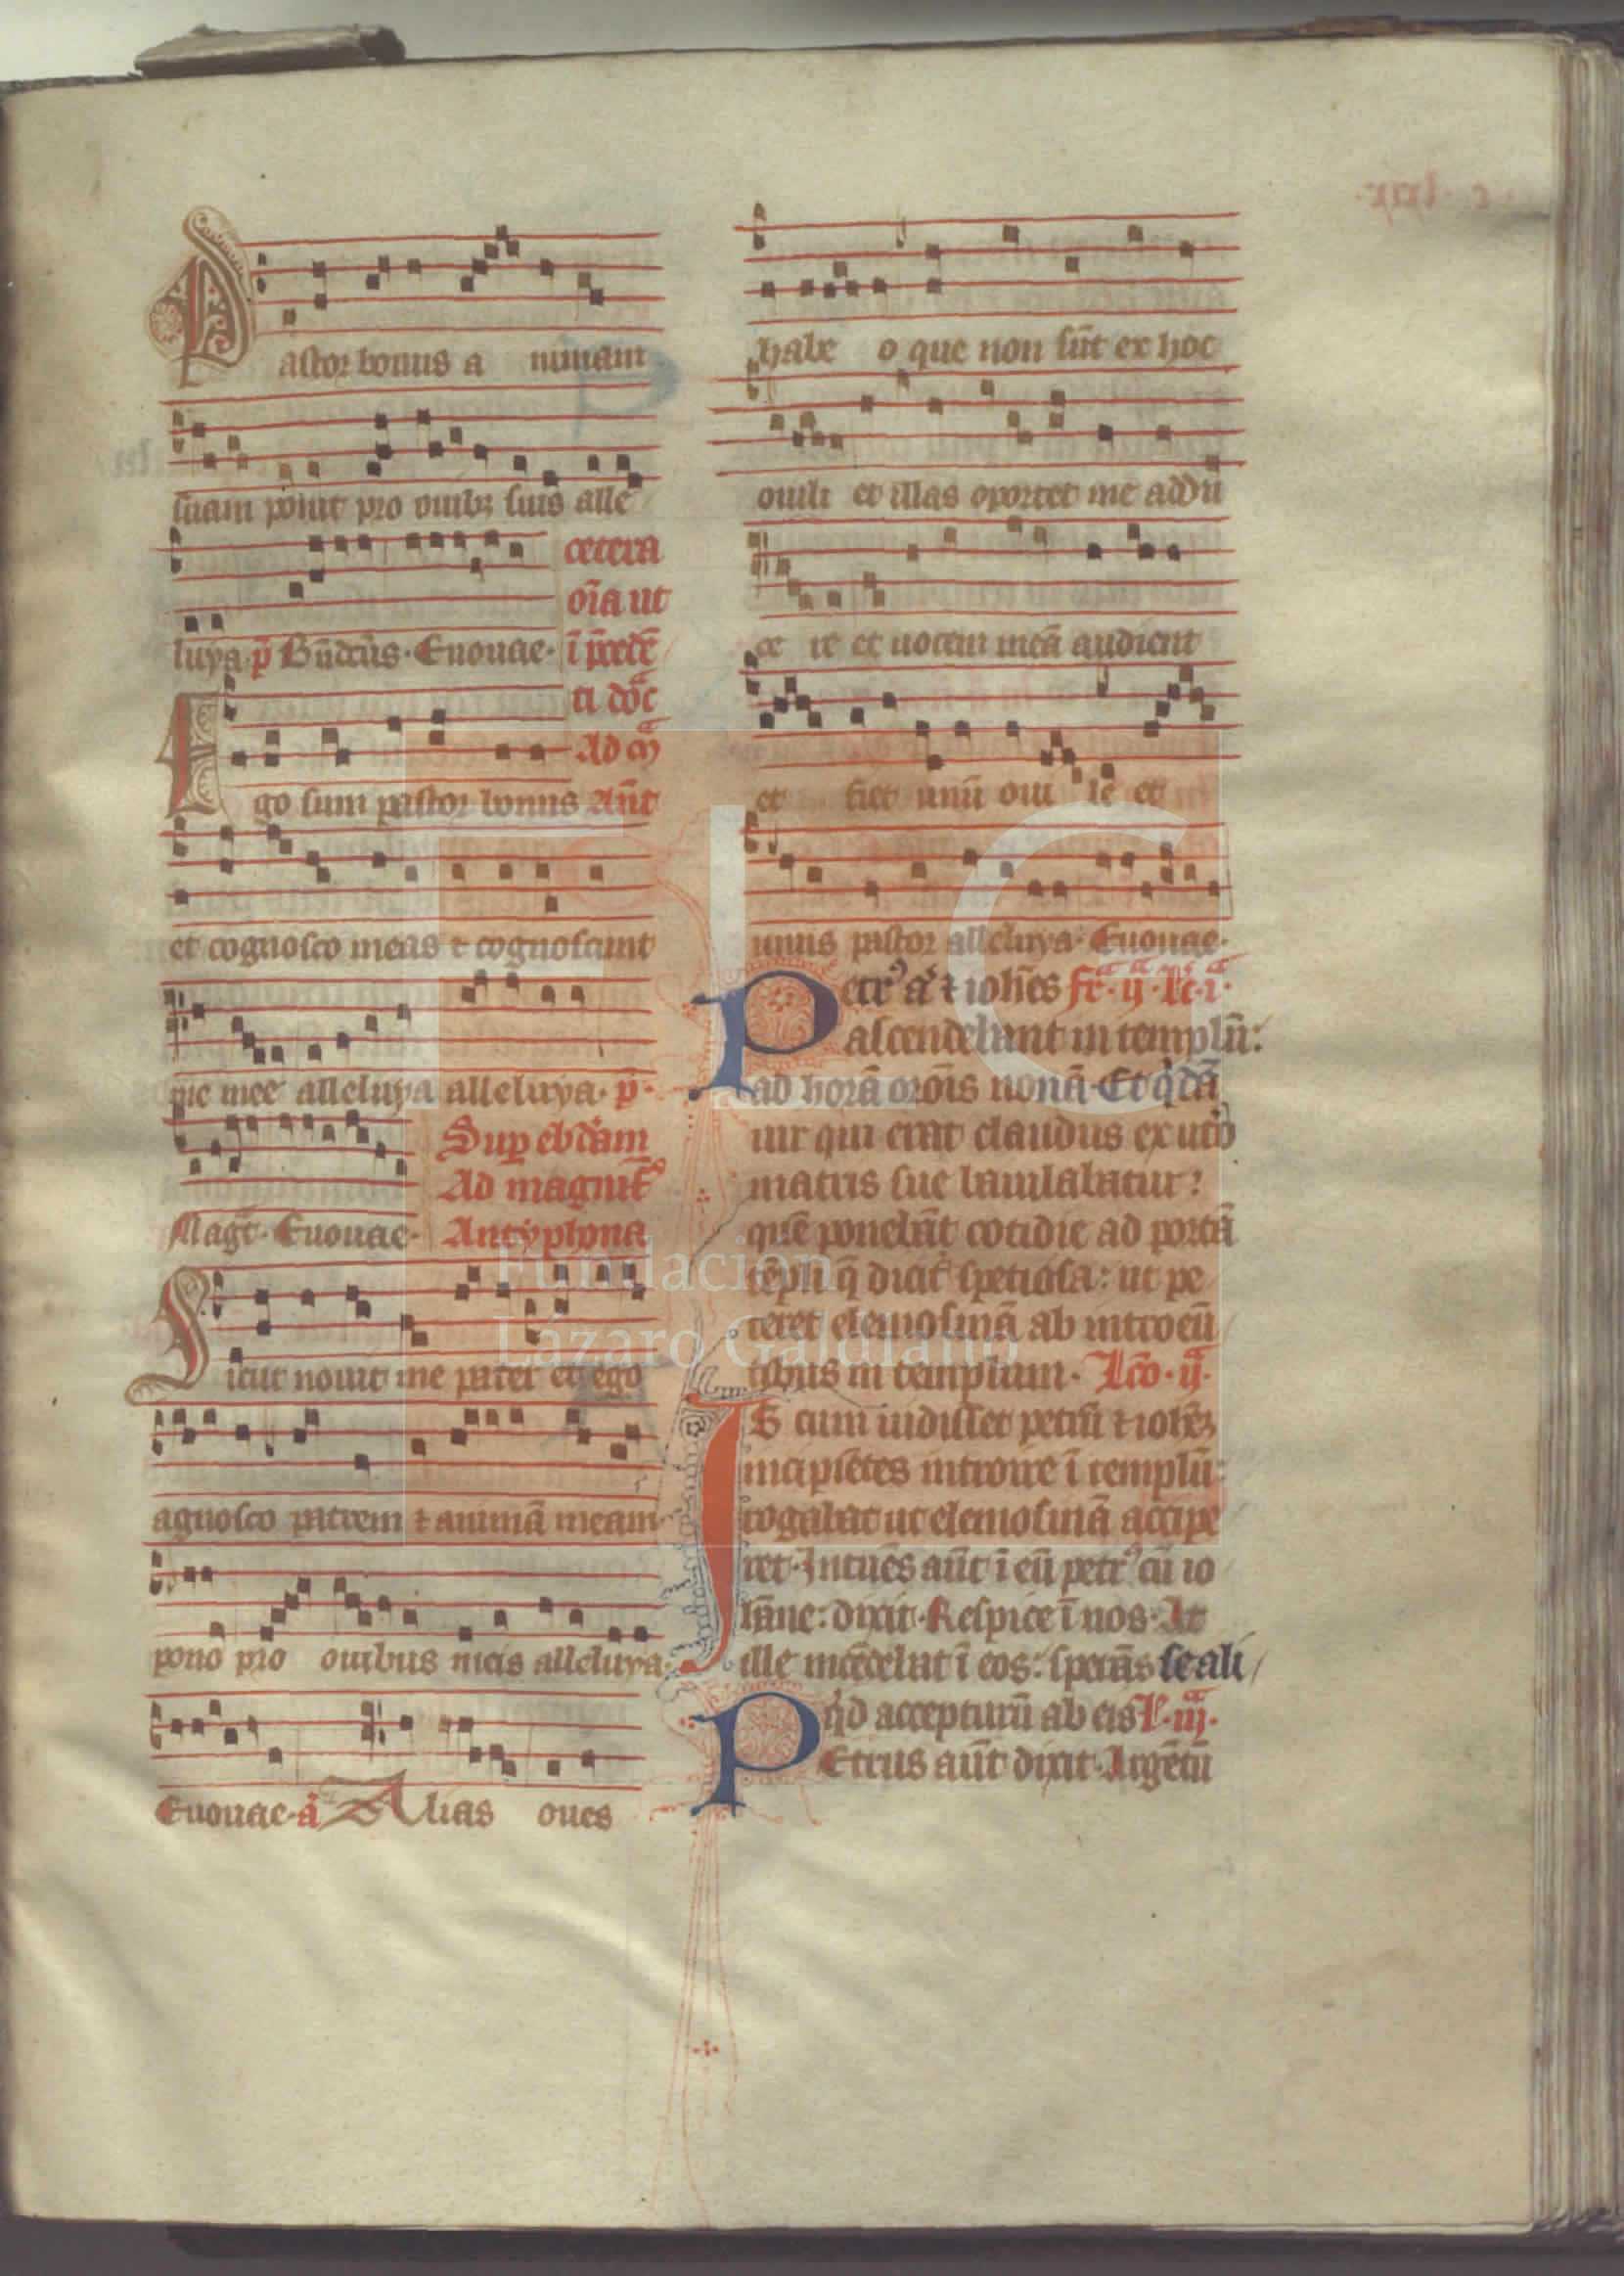 Pastor bonus a nimam
suam ponit pro ouibꝫ suis alle
luya. p̄ Bn̄dc̄us. Euouae.
cetera
oīa ut
ī p̄cedē
ti dōc
Ad m̄
Ego sum pastor bonus Añt
et cognosco meas ⁊ cognoscunt
me mee alleluya alleluya. p̄.
Magt̄. Euouae.
Sup ebdam
Ad magnif̄
Antyphona
Sicut nouit me pater et ego
agnosco patrem ⁊ animā meam
pono pro ouibus meis alleluya.
Euouae. a᷃ Alias oues
habe o que non sūt ex hoc
ouili et illas oportet me addu
ce re et uocem meā audient
et fiet unū oui le et
unus pastor alleluya. Euouae.
Petrꝰ aͭ ⁊ ioh̄es fr̄. ij. lc̄. i.
ascendebant in templū:
ad horā orōis nonā. Et q̄dā
uir qui erat claudus ex uto
matris sue baiulabatur:
quē ponebāt cotidie ad portā
tēpli q̄ dicit᷑ spetiosa: ut pe
teret elemosinā ab introeū
tibus in templum. Lc̄o. ij.
IS cum uidisset petrū ⁊ ioh̄eꝫ
incipiētes introire ī templū:
rogabat ut elemosinā accipe
ret. Intuēs aūt ī eū petrꝰ cū io
hāne: dixit. Respice ī nos. At
ille intēdebat ī eos: sperās se ali/
q̄d accepturū ab eis L. iij.
PEtrus aūt dixit. Argētū
Fundación
Lázaro Galdiano
FLG